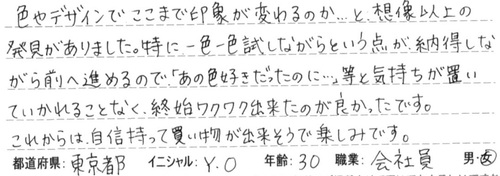 色やデザインでここまで印象が変わるのか…と、想像以上の
発見がありました。特に一色一色試しながらという点が、納得しな
がら前へ進めるので、「あの色好きだったのに…」等と気持ちが置い
ていかれることなく、終始ワクワク出来たのが良かったです。
これからは、自信持って買い物が出来そうで楽しみです。
都道府県：東京都　イニシャル：Y.O　年齢：30　職業：会社員　男・女